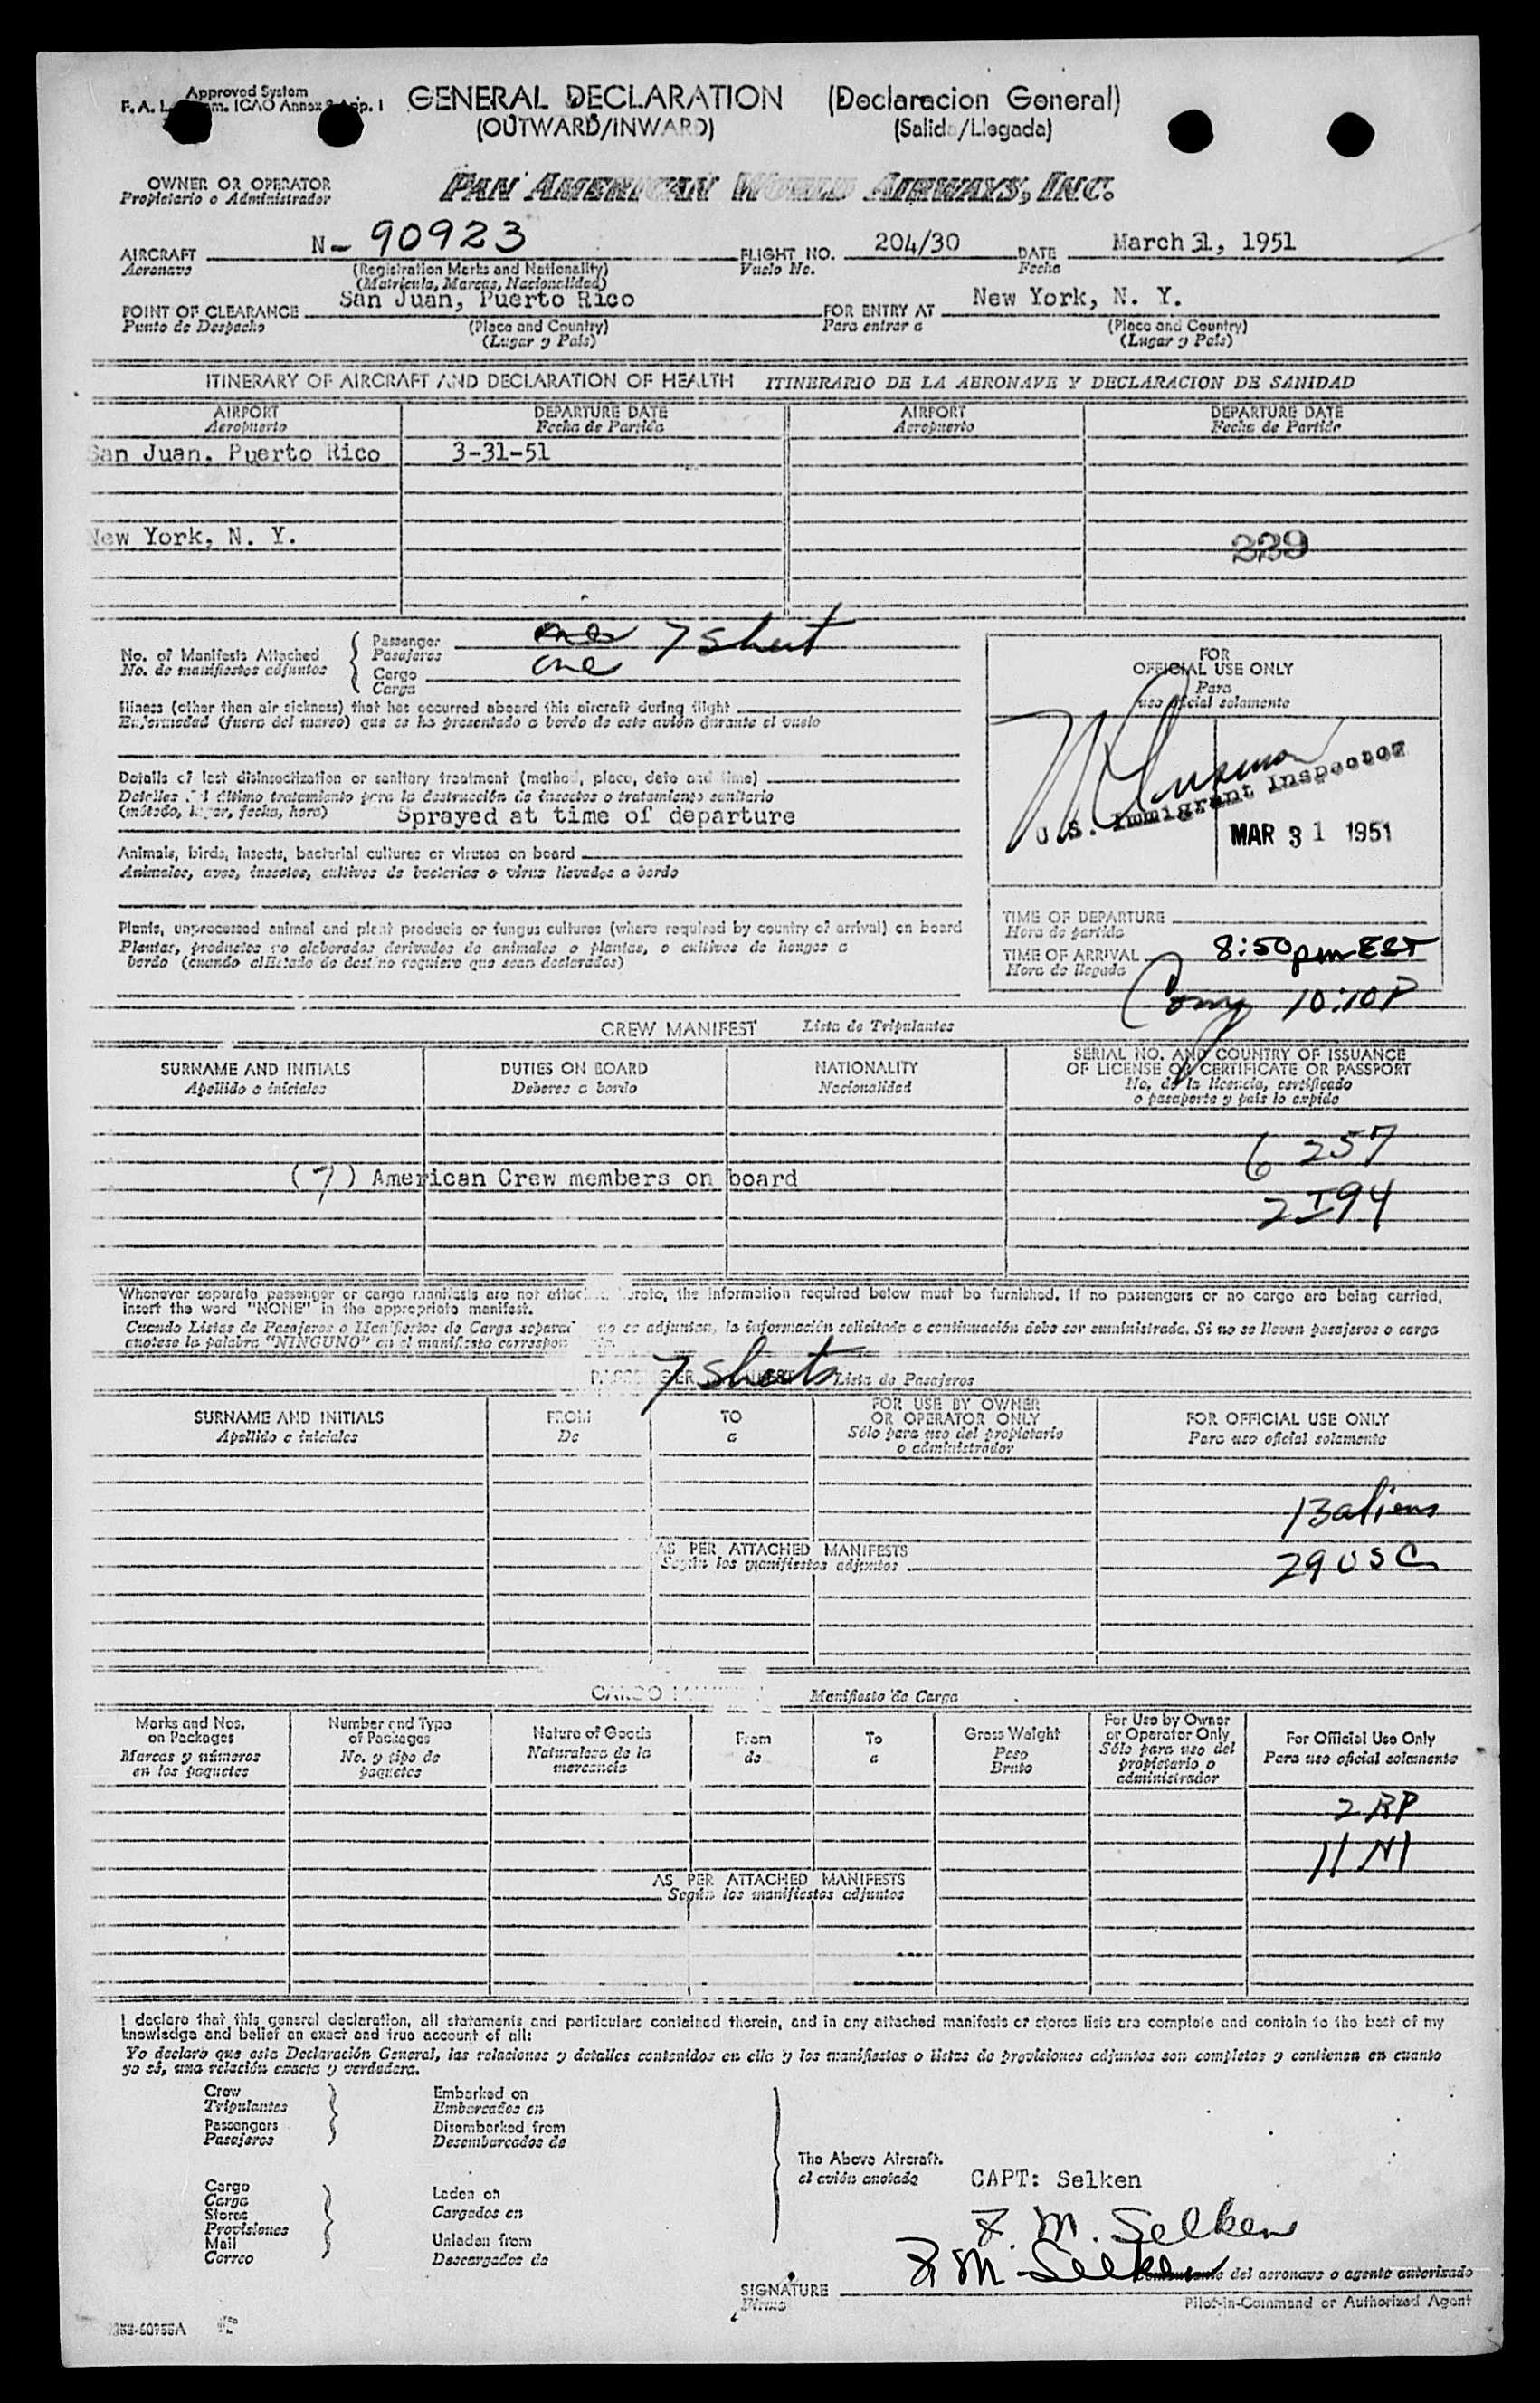 Approved System
F. A. L. ICAO Annex 9 App. 1
GENERAL DECLARATION (Declaracion General)
(OUTWARD/INWARD) (Salida/Llegada)
OWNER OR OPERATOR
Propietario o Administrador
PAN AMERICAN WORLD AIRWAYS, INC.
AIRCRAFT N-90923 FLIGHT NO. 204/30 DATE March 31, 1951
Aeronave (Registration Marks and Nationality) Vuelo No. Fecha
(Matricula, Marcas, Nacionalidad)
POINT OF CLEARANCE San Juan, Puerto Rico FOR ENTRY AT New York, N. Y.
Punto de Despacho (Place and Country) Para entrar a (Place and Country)
(Lugar y Pais) (Lugar y Pais)
ITINERARY OF AIRCRAFT AND DECLARATION OF HEALTH ITINERARIO DE LA AERONAVE Y DECLARACION DE SANIDAD
AIRPORT DEPARTURE DATE AIRPORT DEPARTURE DATE
Aeropuerto Fecha de Partida Aeropuerto Fecha de Partida
San Juan. Puerto Rico 3-31-51
New York, N. Y.
229
No. of Manifests Attached
No. de manifiestos adjuntos
Passenger one 7 Sheet
Pasajeros
Cargo one
Carga
Illness (other than air sickness) that has occurred aboard this aircraft during flight
Enfermedad (fuera del mareo) que se ha presentado a bordo de este avión durante el vuelo
Details of last disinsectization or sanitary treatment (method, place, date and time)
Detalles del último tratamiento para la destrucción de insectos o tratamiento sanitario
(método, lugar, fecha, hora) Sprayed at time of departure
Animals, birds, insects, bacterial cultures or viruses on board
Animales, aves, insectos, cultivos de bacterias o virus llevados a bordo
Plants, unprocessed animal and plant products or fungus cultures (where required by country of arrival) on board
Plantas, productos no elaborados derivados de animales o plantas, o cultivos de hongos a
bordo (cuando el Estado de destino requiere que sean declarados)
FOR
OFFICIAL USE ONLY
Para
uso oficial solamente
U. S. Immigrant Inspector
MAR 31 1951
TIME OF DEPARTURE
Hora de partida
TIME OF ARRIVAL 8:50 pm EST
Hora de llegada
10:10P
CREW MANIFEST Lista de Tripulantes
SURNAME AND INITIALS DUTIES ON BOARD NATIONALITY SERIAL NO. AND COUNTRY OF ISSUANCE
OF LICENSE OR CERTIFICATE OR PASSPORT
Apellido e iniciales Deberes a bordo Nacionalidad No. de la licencia, certificado
o pasaporte y pais lo expide
6 257
(7) American Crew members on board
2 I 94
Whenever separate passenger or cargo manifests are not attached hereto, the information required below must be furnished. If no passengers or no cargo are being carried,
insert the word "NONE" in the appropriate manifest.
Cuando Listas de Pasajeros o Manifiestos de Carga separad no se adjuntan, la información solicitada a continuación debe ser suministrada. Si no se llevan pasajeros o carga
anotese la palabra "NINGUNO" en el manifiesto correspon
PASSENGER MANIFEST 7 Sheets Lista de Pasajeros
SURNAME AND INITIALS FROM TO FOR USE BY OWNER
OR OPERATOR ONLY FOR OFFICIAL USE ONLY
Apellido e iniciales De a Sólo para uso del propietario
o administrador Para uso oficial solamente
13 aliens
AS PER ATTACHED MANIFESTS
Según los manifiestos adjuntos
29 USC
CARGO MANIFEST Manifiesto de Carga
Marks and Nos.
on Packages
Marcas y números
en los paquetes
Number and Type
of Packages
No. y tipo de
paquetes
Nature of Goods
Naturaleza de la
mercancia
From
de
To
a
Gross Weight
Peso
Bruto
For Use by Owner
or Operator Only
Sólo para uso del
propietario o
administrador
For Official Use Only
Para uso oficial solamente
2 RP
11 NI
AS PER ATTACHED MANIFESTS
Según los manifiestos adjuntos
I declare that this general declaration, all statements and particulars contained therein, and in any attached manifests or stores lists are complete and contain to the best of my
knowledge and belief an exact and true account of all:
Yo declaro que esta Declaración General, las relaciones y detalles contenidos en ella y los manifiestos o listas de provisiones adjuntos son completos y contienen en cuanto
yo sé, una relación exacta y verdadera.
Crew Embarked on
Tripulantes Embarcados en
Passengers Disembarked from
Pasajeros Desembarcados de
The Above Aircraft.
el avión anotado
CAPT: Selken
Cargo
Carga
Stores
Provisiones
Mail
Correo
Laden on
Cargados en
Unladen from
Descargados de
F. M. Selken
F M Selken
Comandante del aeronave o agente autorizado
SIGNATURE
Firma
Pilot-in-Command or Authorized Agent